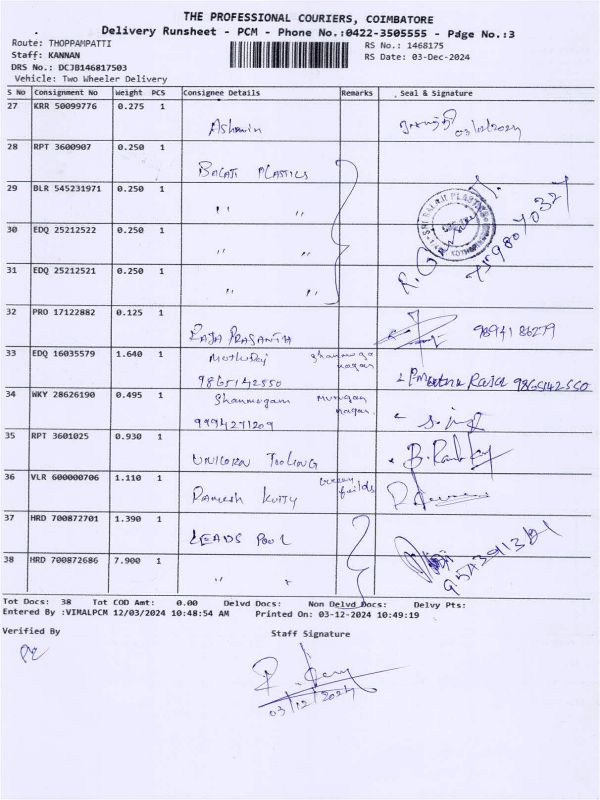 THE PROFESSIONAL COURIERS, COIMBATORE
Delivery Runsheet - PCM - Phone No.:0422-3505555 - Page No.:3
Route: THOPPAMPATTI
RS No.: 1468175
Staff: KANNAN
RS Date: 03-Dec-2024
DRS No.: DCJB146817503
Vehicle: Two Wheeler Delivery
S No Consignment No Weight PCS Consignee Details Remarks Seal & Signature
27 KRR 50099776 0.275 1
Ashwin 03/12/2024
28 RPT 3600907 0.250 1
BALAJI PLASTICS
29 BLR 545231971 0.250 1
" "
30 EDQ 25212522 0.250 1
" "
31 EDQ 25212521 0.250 1
" "
32 PRO 17122882 0.125 1
RAJA PRASANTH 9894186279
33 EDQ 16035579 1.640 1
Muthuraj Shanmuga nagar
9865142550 9865142550
34 WKY 28626190 0.495 1
Shanmugam Murugan nagar
9994271209
35 RPT 3601025 0.930 1
UNICORN TOOLING
36 VLR 600000706 1.110 1
Ramesh Kutty fields
37 HRD 700872701 1.390 1
LEADS POOL
38 HRD 700872686 7.900 1
" "
Tot Docs: 38 Tot COD Amt: 0.00 Delvd Docs: Non Delvd Docs: Delvy Pts:
Entered By :VIMALPCM 12/03/2024 10:48:54 AM Printed On: 03-12-2024 10:49:19
Verified By Staff Signature
03/12/2024